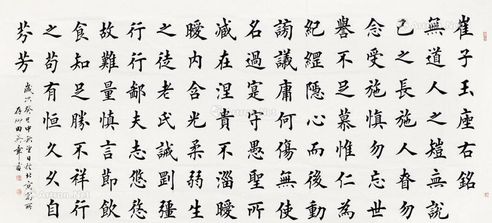 崔子玉座右銘
無道人之短無說
己之長施人眘勿
念受施慎勿忘世
譽不足慕惟仁為
紀綱隱心而後動
謗議庸何傷無使
名過寔守愚聖所
臧在涅貴不淄曖
曖內含光柔弱生
之徒老氏誡剛彊
行行鄙夫志悠悠
故難量慎言節飲
食知足勝不祥行
之苟有恒久久自
芬芳
歲次癸巳中秋
田英章書